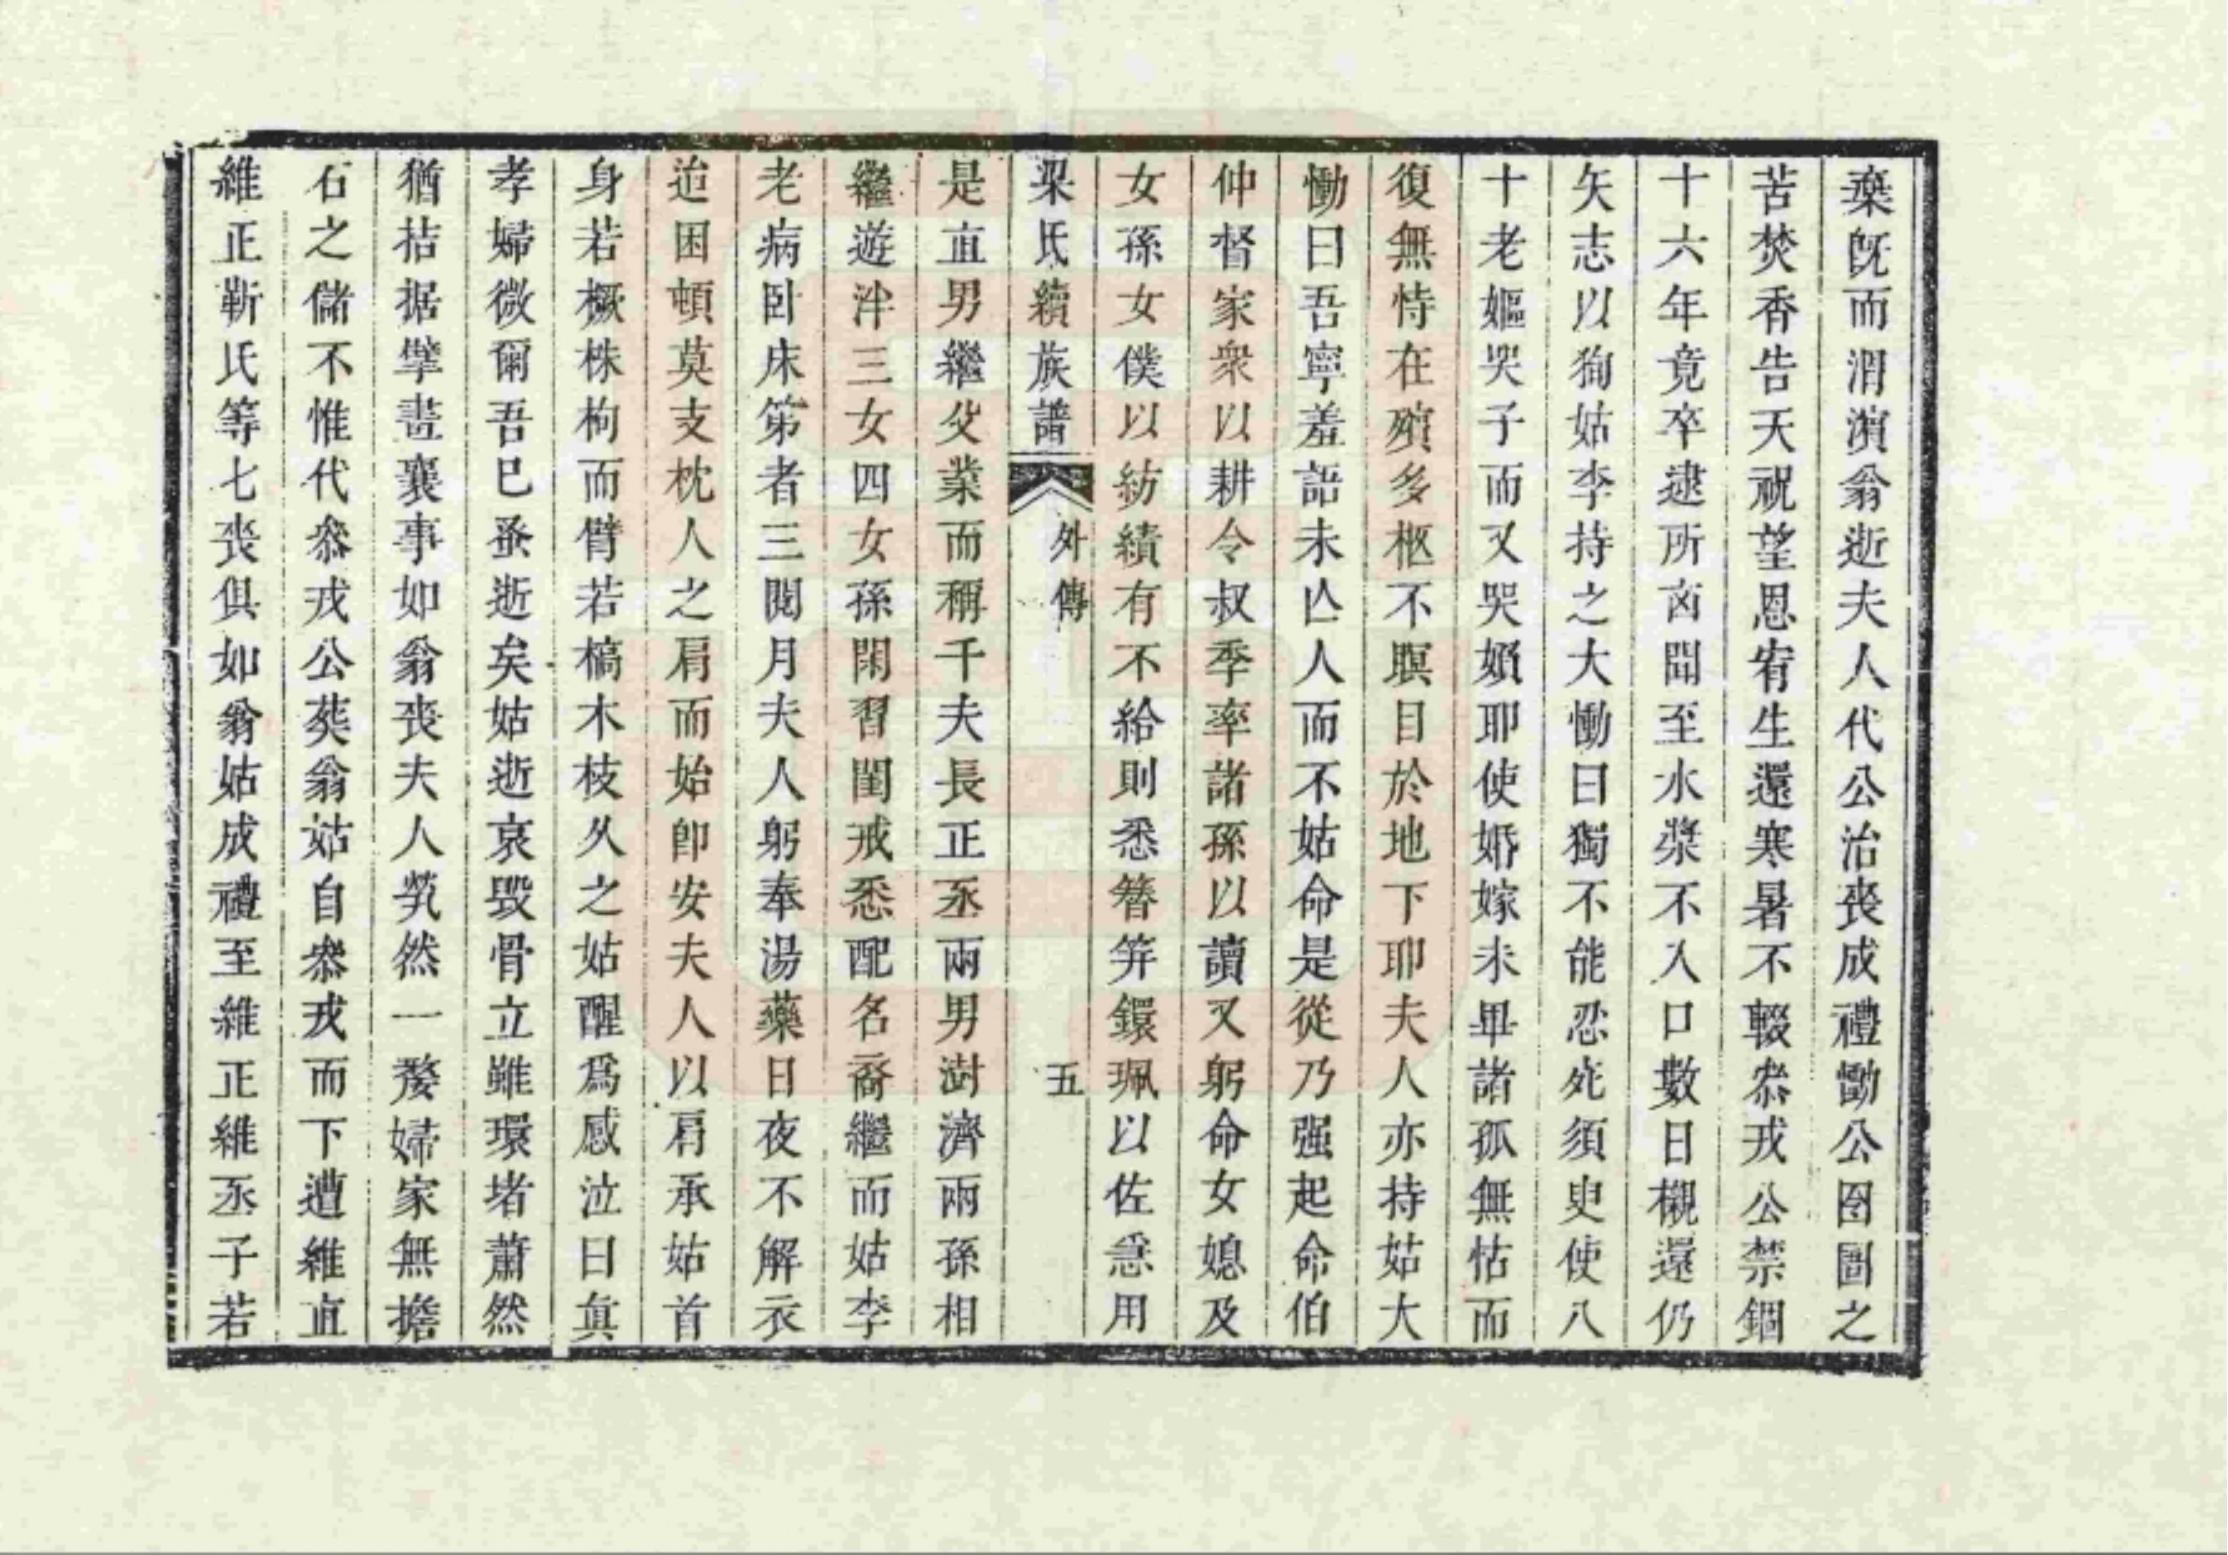 棄既而渭濱翁逝夫人代公治喪成禮慟公囹圄之
苦焚香告天祝望恩宥生還寒暑不輟叅戎公禁錮
十六年竟卒逮所凶聞至水漿不入口數日櫬還仍
矢志以狥姑李持之大慟曰獨不能忍死須臾使八
十老嫗哭子而又哭婦耶使婚嫁未畢諸孤無怙而
復無恃在殯多柩不瞑目於地下耶夫人亦持姑大
慟曰吾寧羞語未亾人而不姑命是從乃强起命伯
仲督家衆以耕令叔季率諸孫以讀又躬命女媳及
女孫女僕以紡績有不給則悉簪笄鐶珮以佐急用
梁氏續族譜 外傳 五
是直男繼父業而稱千夫長正丞兩男澍濟兩孫相
繼遊泮三女四女孫閑習閨戒悉配名裔繼而姑李
老病卧床笫者三閱月夫人躬奉湯藥日夜不解衣
迨困頓莫支枕人之肩而始卽安夫人以肩承姑首
身若橛株枸而臂若槁木枝久之姑醒爲感泣曰眞
孝婦微爾吾已蚤逝矣姑逝哀毀骨立雖環堵蕭然
猶拮据擘畫襄事如翁喪夫人煢然一嫠婦家無擔
石之儲不惟代叅戎公葬翁姑自叅戎而下遭維直
維正靳氏等七喪俱如翁姑成禮至維正維丞子若